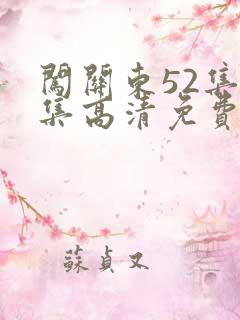 闖關東52集
集高清免費
蘇貞又